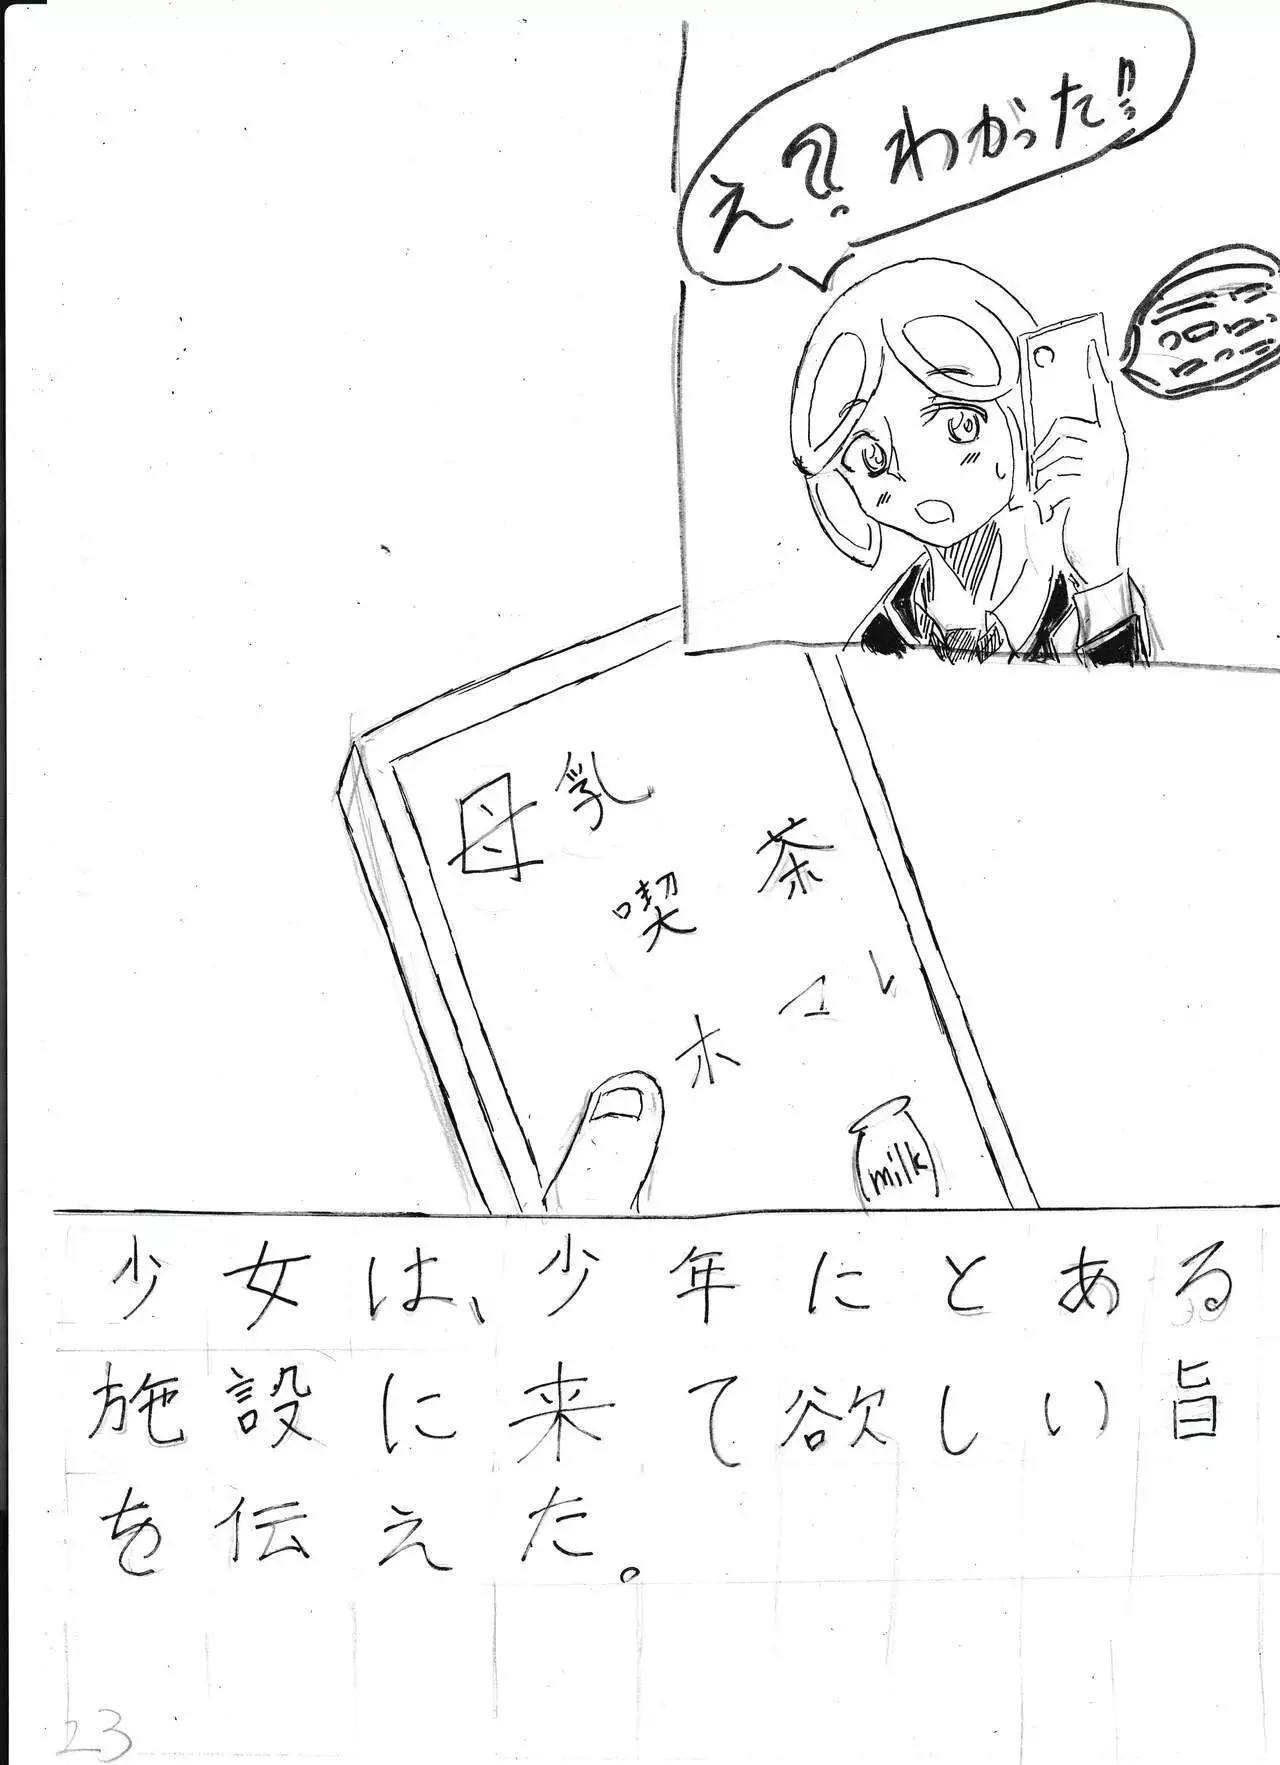 え?わかった!!
母乳
喫茶
ホエル
milk
少女は、少年にとある
施設に来て欲しい旨
を伝えた。
23